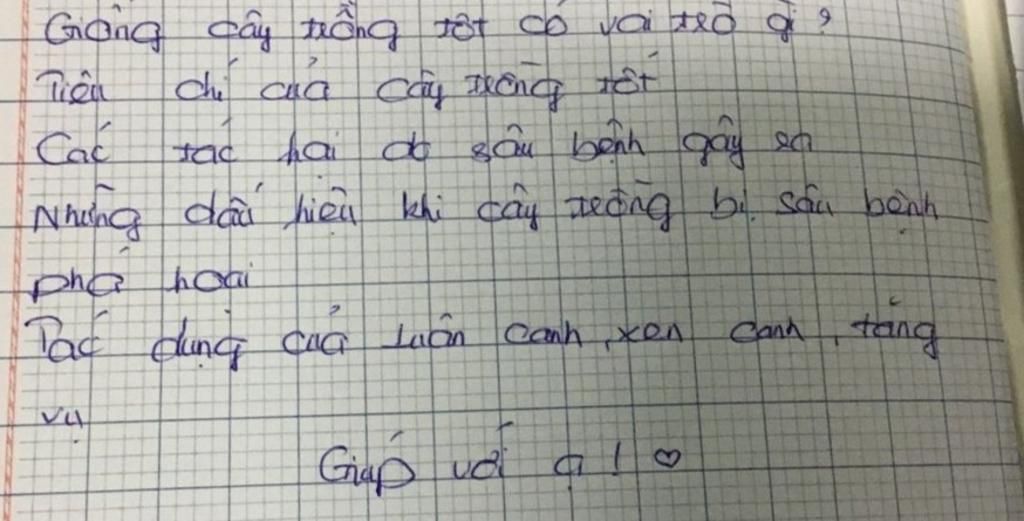 Giống cây trồng tốt có vai trò gì?
Tiêu chí của cây trồng tốt
Các tác hại do sâu bệnh gây ra
Những dấu hiệu khi cây trồng bị sâu bệnh
phá hoại
Tác dụng của luân canh, xen canh, tăng
vụ
Giúp với ạ! ♡